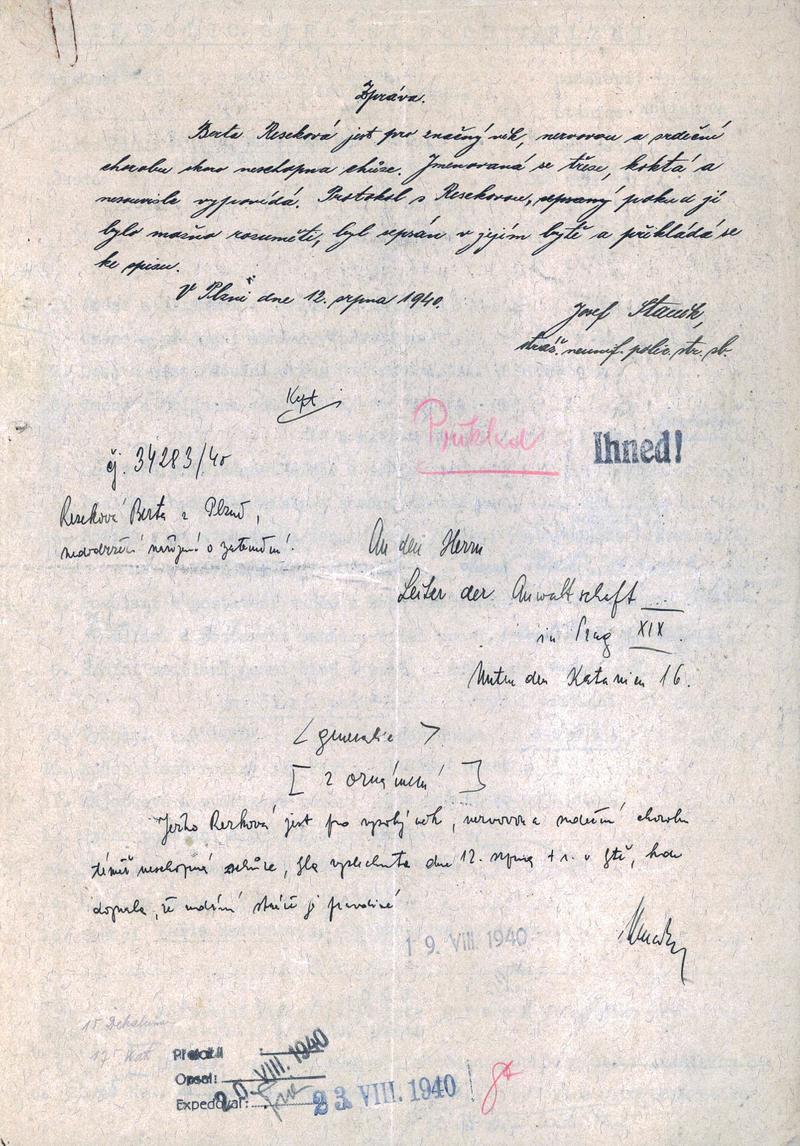 Zpráva.
Berta Reseková jest pro značný věk, nervovou a srdeční
chorobu skoro neschopna chůze. Jmenovaná se třese, koktá a
nesouvisle vypovídá. Protokol s Resekovou, sepsaný pokud jí
bylo možno rozuměti, byl sepsán v jejím bytě a přikládá se
ke spisu.
V Plzni dne 12. srpna 1940.
Josef
stráž. neunif. polic. str. sb.
Překlad
Ihned!
čj. 34283/40
Reseková Berta z Plzně,
nedodržení nařízení o zatemnění.
An den Herrn
Leiter der Anwaltschaft
in Prag XIX
Unter den Kastanien 16.
< generalie >
[ z oznámení ]
Ježto Resková jest pro vysoký věk, nervovou a srdeční chorobu
téměř neschopná chůze, byla vyslechnuta dne 12. srpna t. r. v bytě, kde
doznala, že udání stráže je pravdivé
19. VIII. 1940
Přeložil:
Opsal: 20. VIII. 1940
Expedoval: 23. VIII. 1940